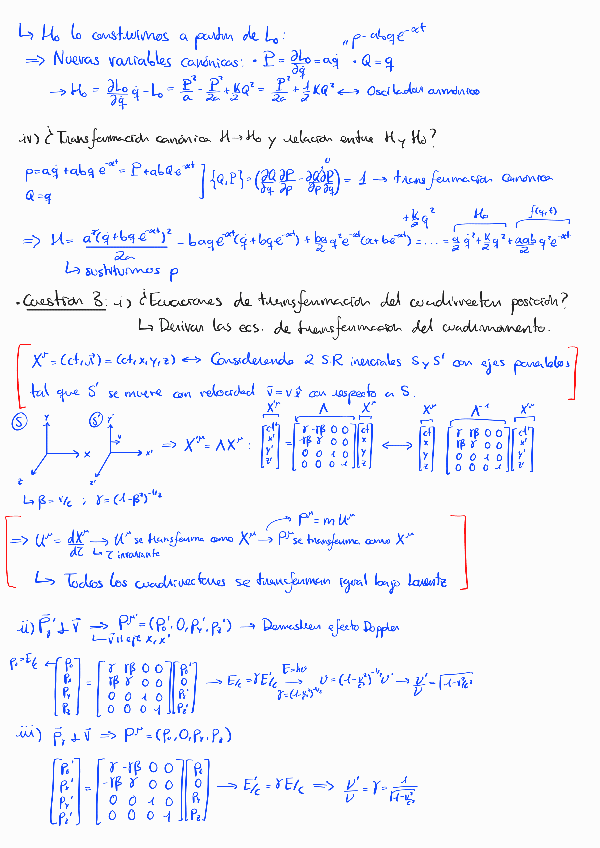 ↳ H₀ lo construimos a partir de L₀:
"p - abqe^{-αt}
⇒ Nuevas variables canónicas: · P = ∂L₀/∂q̇ = aq̇ · Q = q
→ H₀ = ∂L₀/∂q̇ q̇ - L₀ = P²/a - P²/2a + k/2 Q² = P²/2a + 1/2 KQ² ↔ Oscilador armónico
iv) ¿Transformación canónica H→H₀ y relación entre H y H₀?
p = aq̇ + abq e^{-αt} = P + abQ e^{-αt}
Q = q
] {Q,P} = (∂Q/∂q ∂P/∂p - ∂Q/∂p ∂P/∂q) = 1 → transformación canónica
⇒ H = a²(q̇ + bq e^{-αt})²/2a - baqe^{-αt}(q̇ + bqe^{-αt}) + ba/2 q²e^{-αt}(α + be^{-αt}) + k/2 q² = .... = a/2 q̇² + k/2 q² + αab/2 q²e^{-αt}
H₀ f(q,t)
↳ sustituimos p
· Cuestión 3: i) ¿Ecuaciones de transformación del cuadrivector posición?
↳ Derivar las ecs. de transformación del cuadrimomento.
X^μ = (ct, x⃗) = (ct, x, y, z) ↔ Considerando 2 S.R inerciales S y S' con ejes paralelos
tal que S' se mueve con velocidad v̄ = v x̂ con respecto a S.
X'^μ Λ X^μ X^μ Λ⁻¹ X'^μ
Ⓢ Y X Z Ⓢ' Y' v x' z' ⇒ X'^μ = ΛX^μ : [ct' x' y' z'] = [γ -γβ 0 0; -γβ γ 0 0; 0 0 1 0; 0 0 0 1] [ct x y z] ↔ [ct x y z] [γ γβ 0 0; γβ γ 0 0; 0 0 1 0; 0 0 0 1] [ct' x' y' z']
↳ β = v/c ; γ = (1-β²)^{-1/2}
P^μ = m U^μ
⇒ U^μ = dX^μ/dτ → U^μ se transforma como X^μ → P^μ se transforma como X^μ
↳ τ invariante
↳ Todos los cuadrivectores se transforman igual bajo Lorentz
ii) P̄' ⊥ v̄ ⇒ P^μ' = (P₀', 0, P_y', P_z') → Demuestren efecto Doppler
↳ v̄ ∥ eje x, x'
P₀ = E/c ← [P₀ P_x P_y P_z] = [γ γβ 0 0; γβ γ 0 0; 0 0 1 0; 0 0 0 1] [P₀' 0 P_y' P_z'] → E/c = γE'/c → E=hν γ=(1-v²/c²)^{-1/2} ν = (1-v²/c²)^{-1/2} ν' → ν'/ν = √(1-v²/c²)
iii) P̄ ⊥ v̄ ⇒ P^μ = (P₀, 0, P_y, P_z)
[P₀' P_x' P_y' P_z'] = [γ -γβ 0 0; -γβ γ 0 0; 0 0 1 0; 0 0 0 1] [P₀ 0 P_y P_z] → E'/c = γE/c ⇒ ν'/ν = γ = 1/√(1-v²/c²)